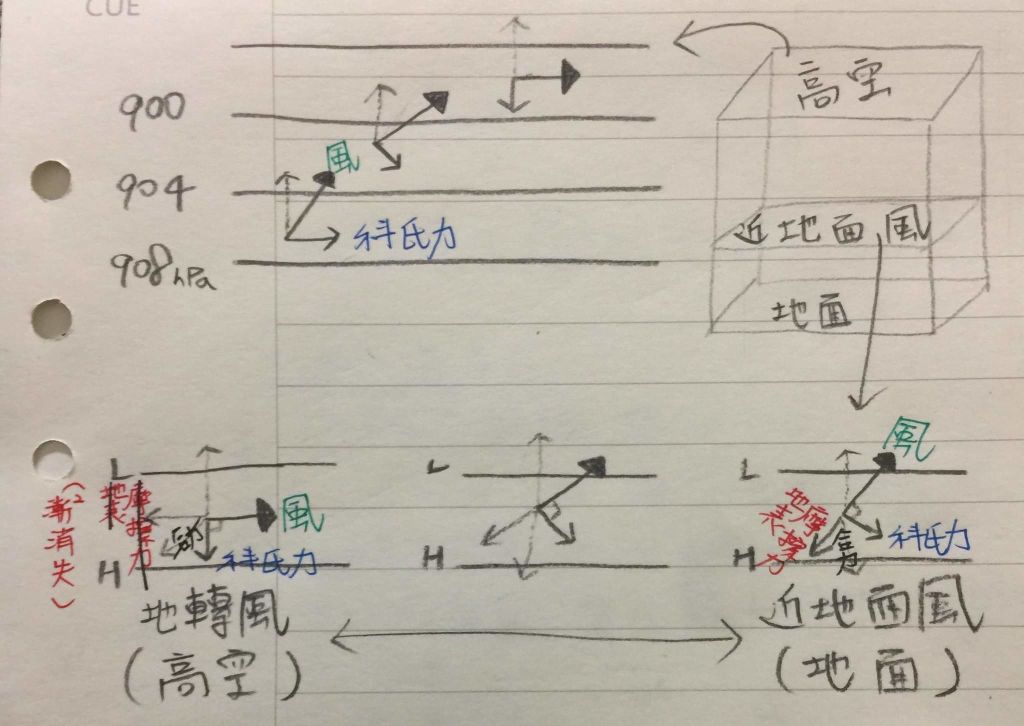 CUE
高空
900
風
904
科氏力
近地面風
908hPa
地面
風
L
L
L
地表
摩擦力
(漸消失)
風
科氏力
地表
摩擦力
合力
科氏力
H
H
H
地轉風
(高空)
近地面風
(地面)